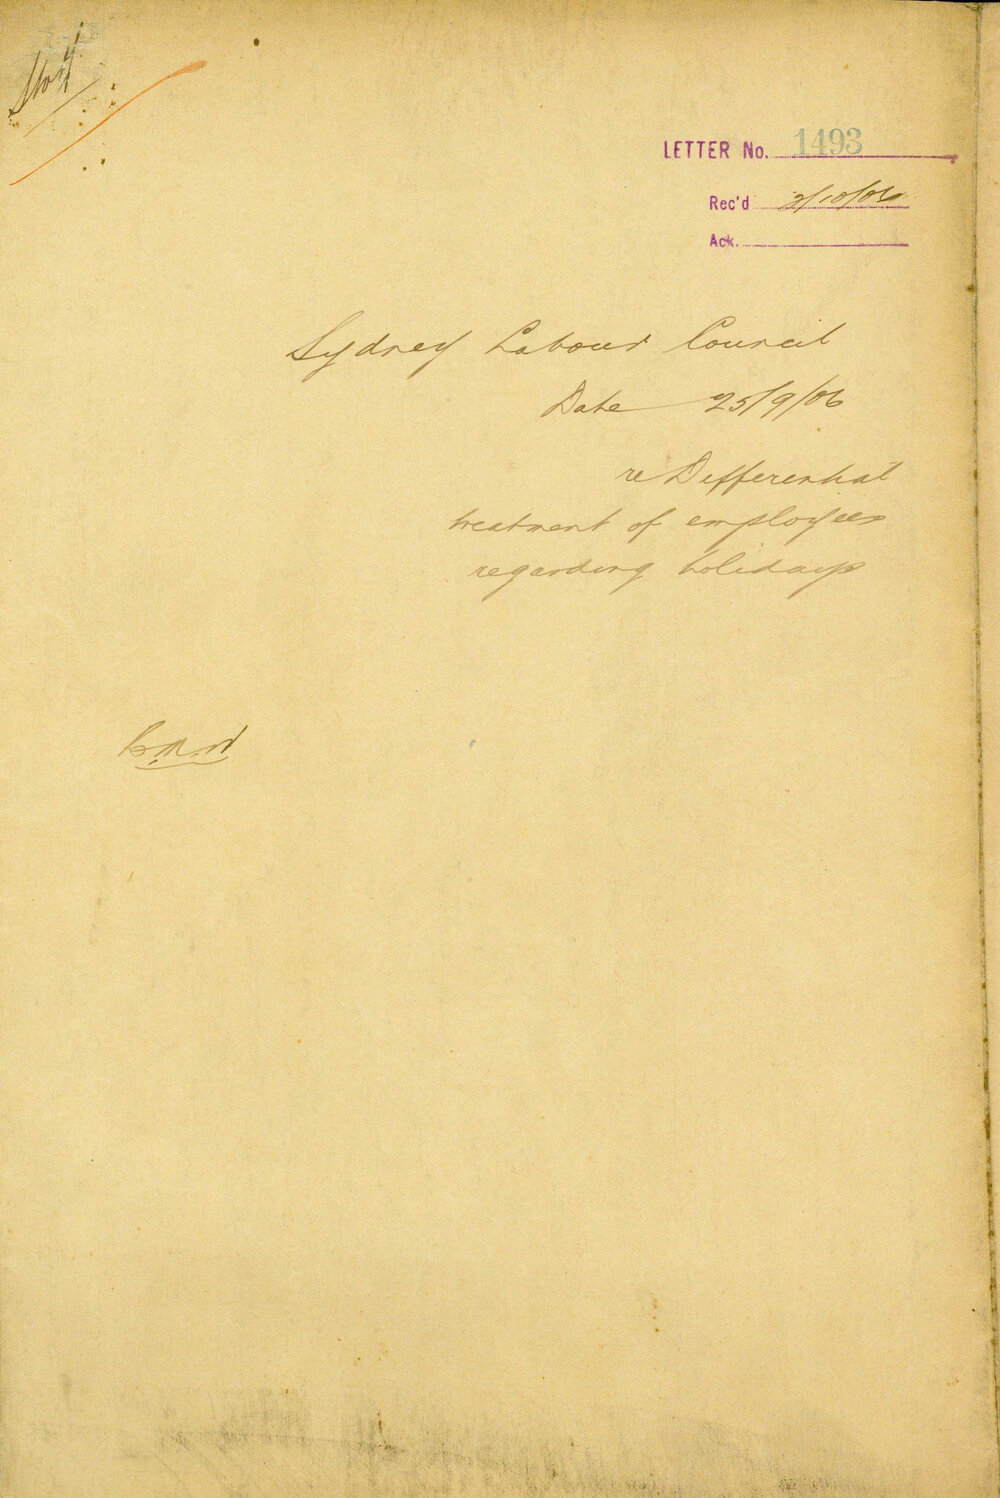 LETTER No. 1493
Rec'd 2/10/06
Ack.
Sydney Labour Council
Date 25/9/06
re Differential
treatment of employees
regarding holidays